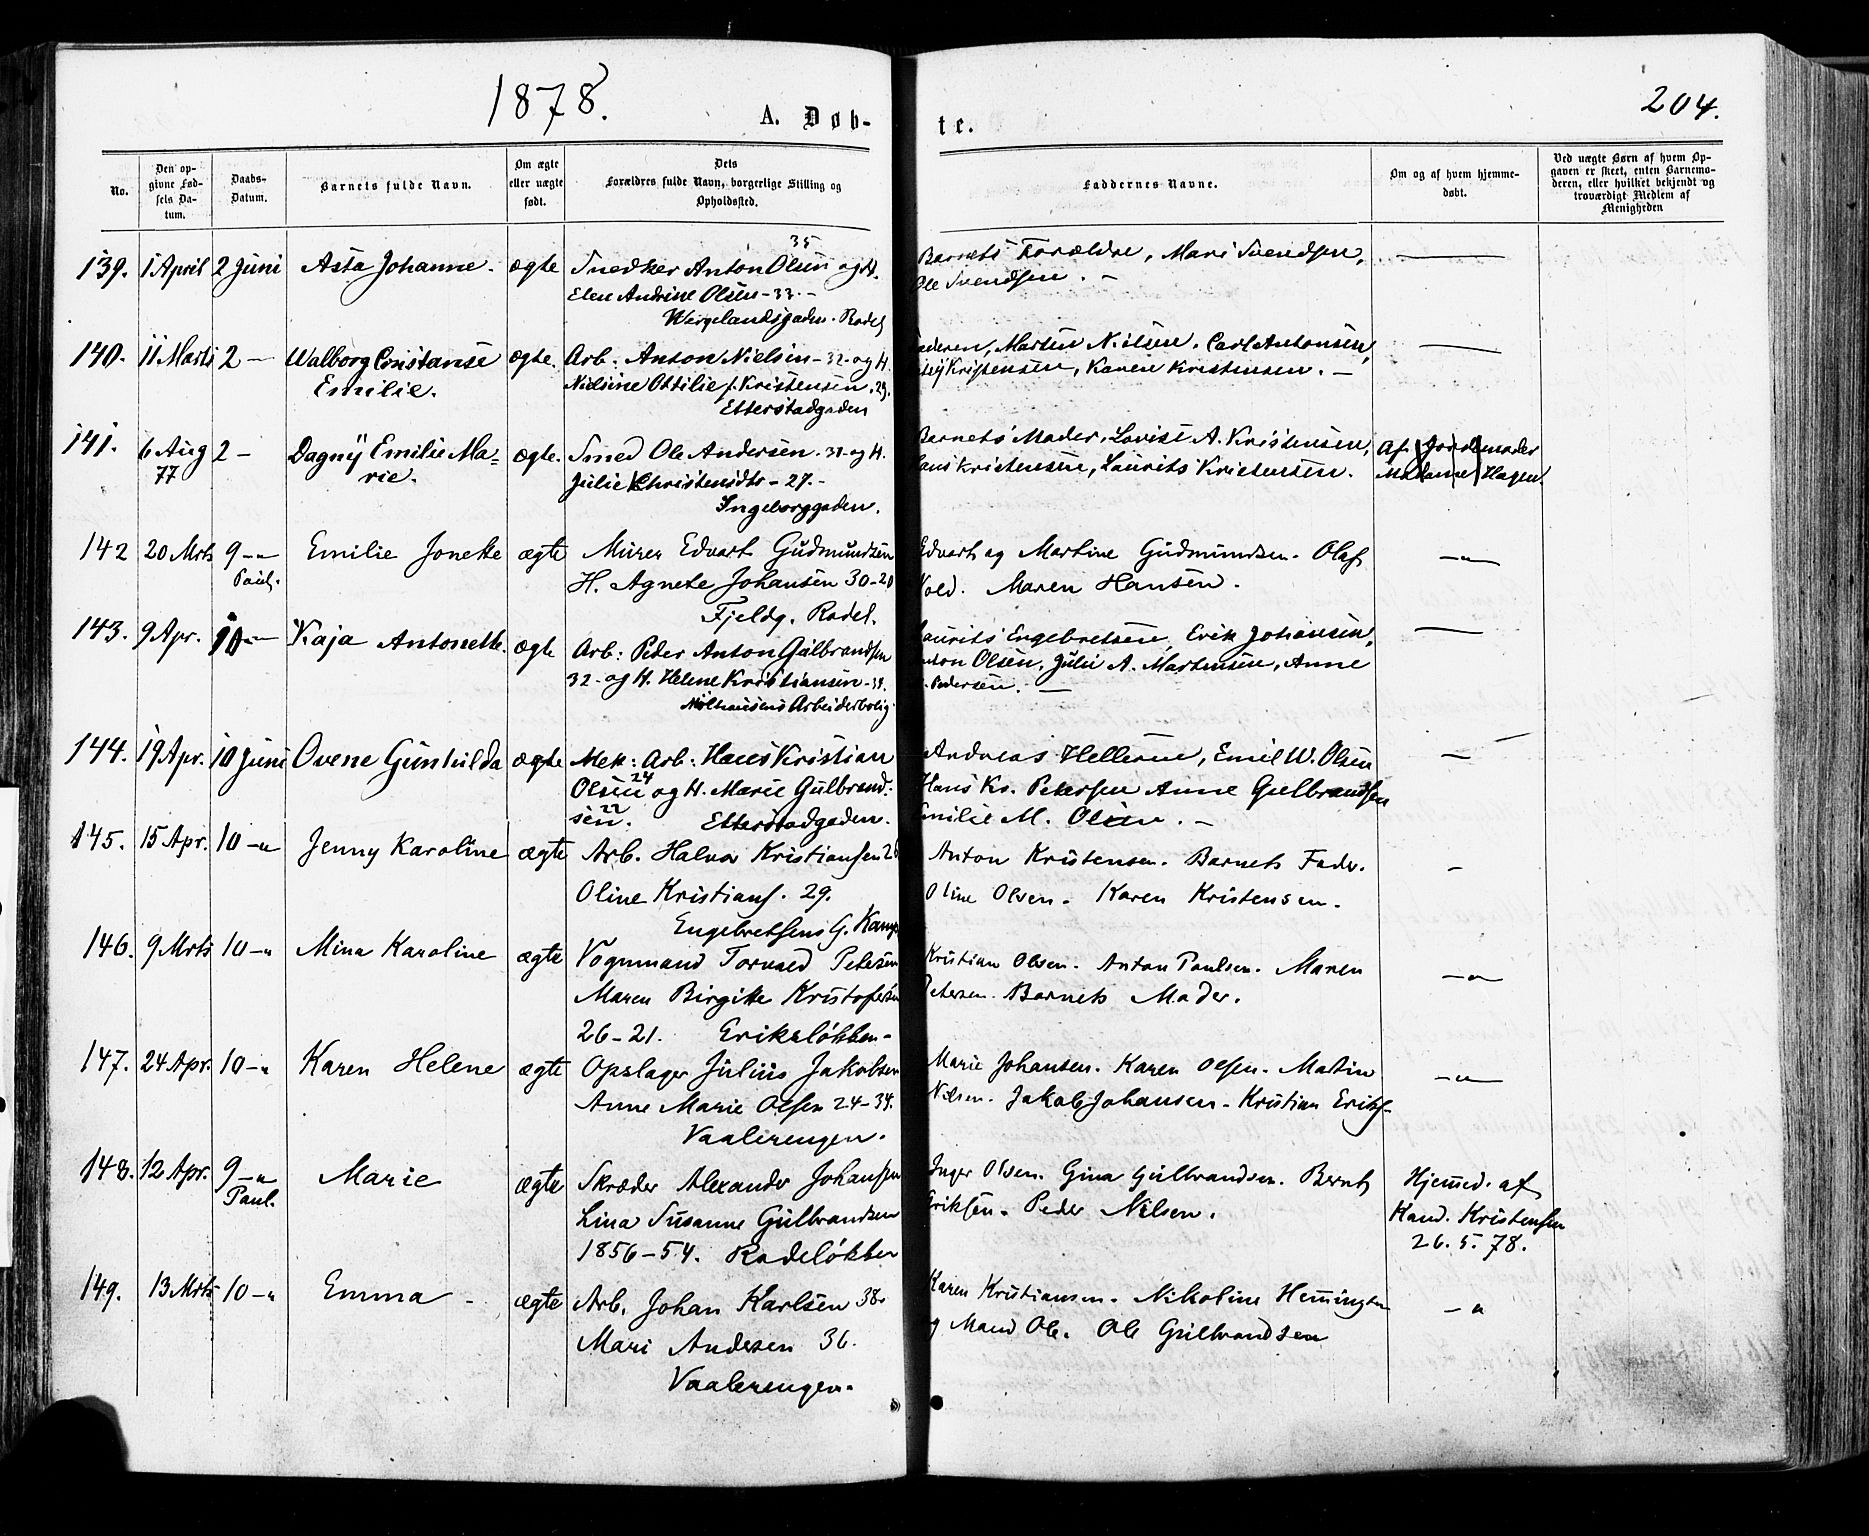 1878.
204.
A. Døb-
te.
No.
Den op-
givne Fød-
sels Da-
tum.
Daabs-
Datum.
Barnets fulde Navn.
Om ægte
eller uægte
født.
Dets
Forældres fulde Navn, borgerlige Stilling og
Opholdssted.
Faddernes Navne.
Om og af hvem hjemme-
døbt.
Ved uægte Børn af hvem Op-
gaven er skeet, enten Barnemo-
deren, eller hvilket bekjendt og
troværdigt Medlem af
Menigheden
139. 1 April 2 Juni Asta Johanne. ægte Snedker Anton Olsen 35 og H.
Elen Andrine Olsen - 33. -
Wergelandsgaden. Rodel
Barnets Forældre, Mari Svendsen,
Ole Svendsen. -
140. 11 Marts 2 - Walborg Constanse ægte. Arb: Anton Nielsen - 32 - og H.
Emilie. Nielsine Ottilie f. Kristensen . 29.
Etterstadgaden
Faderen, Martin Nielsen. Carl Antonsen,
Kristensen, Karen Kristensen. -
141. 6 Aug 2 - Dagny Emilie Ma= ægte. Smed Ole Andersen . 31 - og H.
77 rie. Julie Christensdtr - 27. -
Ingeborggaden.
Barnets Moder, Lovise A. Kristensen,
Hans Kristensen, Laurits Kristensen.
Af Jordemoder
Madame Hagen.
142 20 Mrts 9 -"- Emilie Jonette ægte Murer Edvart Gudmundsen
Paul. H. Agnete Johansen 30 - 20
Fjeldg. Rodel.
Edvart og Martine Gudmundsen. Olaf
Vold. Maren Hansen.
-"-
143. 9 Apr. 10 -"- Kaja Antonette. ægte Arb: Peder Anton Gulbrandsen
32 - og H. Helene Kristiansen - 38.
Nielhausens Arbeiderbolig
Laurits Engebretsen, Erik Johansen,
Anton Olsen, Julie A. Martensen, Anne
Pedersen. -
144. 19 Apr. 10 Juni Ovene Gunhilda ægte Mek: Arb: Hans Kristian
Olsen 24 og H. Marie Gulbrand-
sen. 22 Etterstadgaden.
Andreas Hellerue, Emil W. Olsen
Hans Kr. Petersen Anne Gulbrandsen
Emilie M. Olsen. -
145. 15 Apr. 10 -" Jenny Karoline ægte Arb. Halvor Kristiansen 26
Oline Kristians. 29.
Engebretsens G. Kamp
Anton Kristensen. Barnets Fader.
Oline Olsen. Karen Kristensen.
-
146. 9 Mrts 10 -" Mina Karoline ægte Vognmand Torvald Petersen
Maren Birgitte Kristofersen
26 - 21. Eriksløkken -
Kristian Olsen. Anton Paulsen. Maren
Petersen. Barnets Moder.
-"-
147. 24 Apr. 10 -" Karen Helene ægte Opslager Julius Jakobsen
Anne Marie Olsen 24 - 34.
Vaalerengen.
Marie Johansen. Karen Olsen. Martin
Nilsen. Jakob Johansen. Kristian Eriks-
-"-
148. 12 Apr. 9 -" Marie ægte Skræder Alexander Johansen
Paul. Lina Susanne Gulbrandsen
1856 - 54. Rodeløkken
Inger Olsen. Gina Gulbrandsen. Bernt
Eriksen. Peder Nilsen.
Hjemmed. af
Kand. Kristensen
26. 5. 78.
149. 13 Mrts 10 -" Emma - ægte Arb. Johan Karlsen 38.
Mari Andersen 36.
Vaalerengen.
Karen Kristiansen. Nikoline Hemmingsen
og Mand Ole. Ole Gulbrandsen
-"